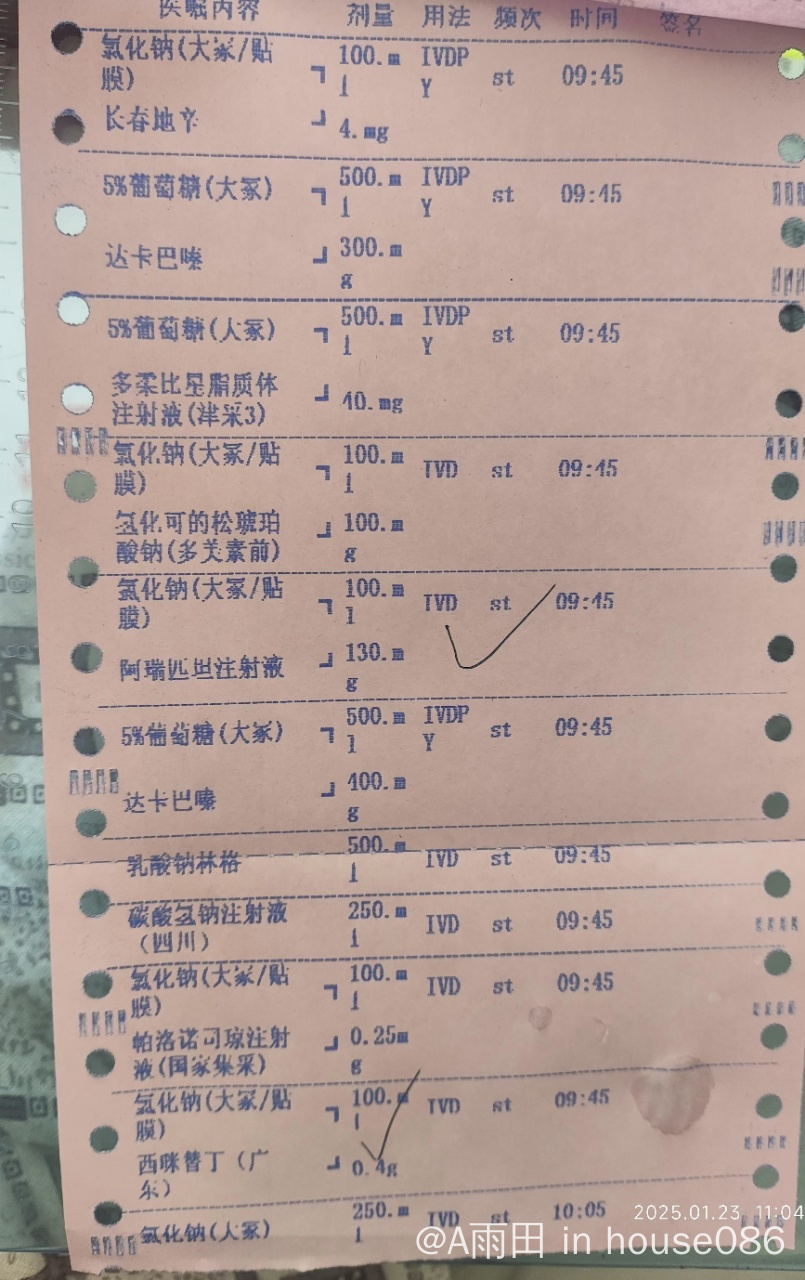 医嘱内容 剂量 用法 频次 时间 签名
氯化钠(大冢/贴 100.m IVDP
膜) l Y st 09:45
长春地辛 4.mg
5%葡萄糖(大冢) 500.m IVDP
l Y st 09:45
达卡巴嗪 300.m
g
5%葡萄糖(大冢) 500.m IVDP
l Y st 09:45
多柔比星脂质体
注射液(津采3) 40.mg
氯化钠(大冢/贴 100.m IVD st 09:45
膜) l
氢化可的松琥珀 100.m
酸钠(多美素前) g
氯化钠(大冢/贴 100.m IVD st 09:45
膜) l
阿瑞匹坦注射液 130.m
g
5%葡萄糖(大冢) 500.m IVDP
l Y st 09:45
达卡巴嗪 400.m
g
乳酸钠林格 500.m IVD st 09:45
l
碳酸氢钠注射液 250.m IVD st 09:45
(四川) l
氯化钠(大冢/贴 100.m IVD st 09:45
膜) l
帕洛诺司琼注射 0.25m
液(国家集采) g
氯化钠(大冢/贴 100.m IVD st 09:45
膜) l
西咪替丁(广 0.4g
东)
氯化钠(大冢) 250.m IVD st 10:05
l
2025.01.23 11:04
@A雨田 in house086